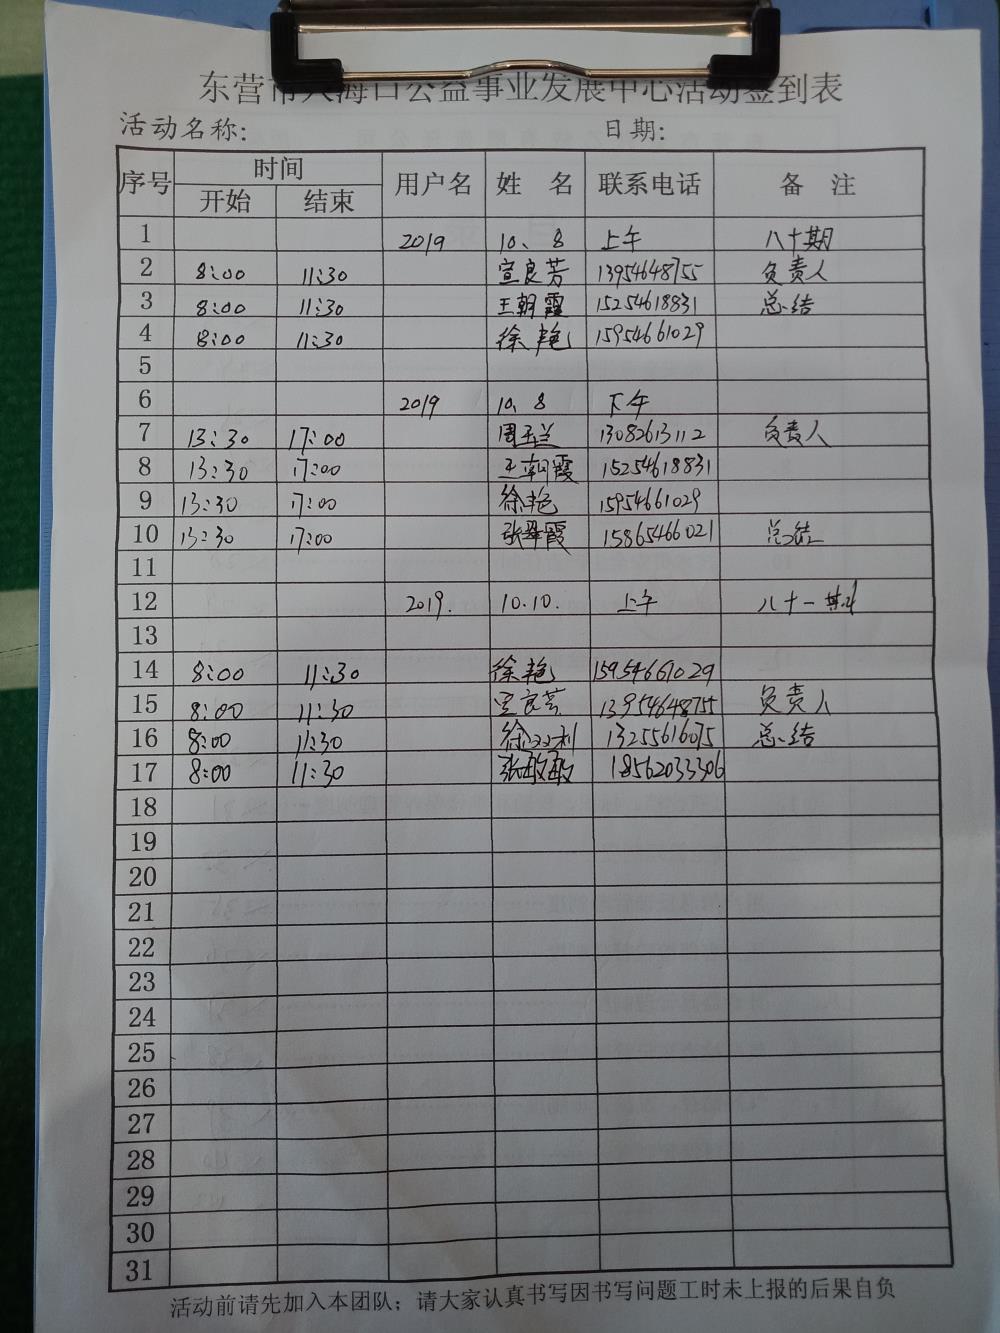 东营市入海口公益事业发展中心活动签到表
活动名称: 日期:
序号 时间 用户名 姓 名 联系电话 备 注
开始 结束
1 2019 10、8 上午 八十期
2 8:00 11:30 宣良芳 13954648755 负责人
3 8:00 11:30 王朝霞 15254618831 总结
4 8:00 11:30 徐艳 15954661029
5
6 2019 10、8 下午
7 13:30 17:00 周玉兰 13082613112 负责人
8 13:30 17:00 王朝霞 15254618831
9 13:30 17:00 徐艳 15954661029
10 13:30 17:00 张翠霞 15865466021 总结
11
12 2019. 10.10. 上午 八十一期
13
14 8:00 11:30 徐艳 15954661029
15 8:00 11:30 宣良芳 13954648755 负责人
16 8:00 11:30 徐双利 13255616075 总结
17 8:00 11:30 张敏敏 18562033306
18
19
20
21
22
23
24
25
26
27
28
29
30
31
活动前请先加入本团队；请大家认真书写因书写问题工时未上报的后果自负